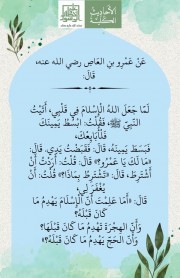 الأحاديث
الكلية
عَنْ عَمْرِو بنِ العَاصِ رضي الله عنه،
قَالَ:
لَمَّا جَعَلَ اللهُ الْإِسْلَامَ فِي قَلْبِي، أَتَيْتُ
النَّبِيَّ ﷺ، فَقُلْتُ: ابْسُطْ يَمِينَكَ
فَلْأُبَايِعْكَ،
فَبَسَطَ يَمِينَهُ، قَالَ: فَقَبَضْتُ يَدِي. قَالَ:
«مَا لَكَ يَا عَمْرُو؟» قَالَ: قُلْتُ: أَرَدْتُ أَنْ
أَشْتَرِطَ، قَالَ: «تَشْتَرِطُ بِمَاذَا؟» قُلْتُ: أَنْ
يُغْفَرَ لِي،
قَالَ: «أَمَا عَلِمْتَ أَنَّ الْإِسْلَامَ يَهْدِمُ مَا
كَانَ قَبْلَهُ؟
وَأَنَّ الْهِجْرَةَ تَهْدِمُ مَا كَانَ قَبْلَهَا؟
وَأَنَّ الْحَجَّ يَهْدِمُ مَا كَانَ قَبْلَهُ؟»